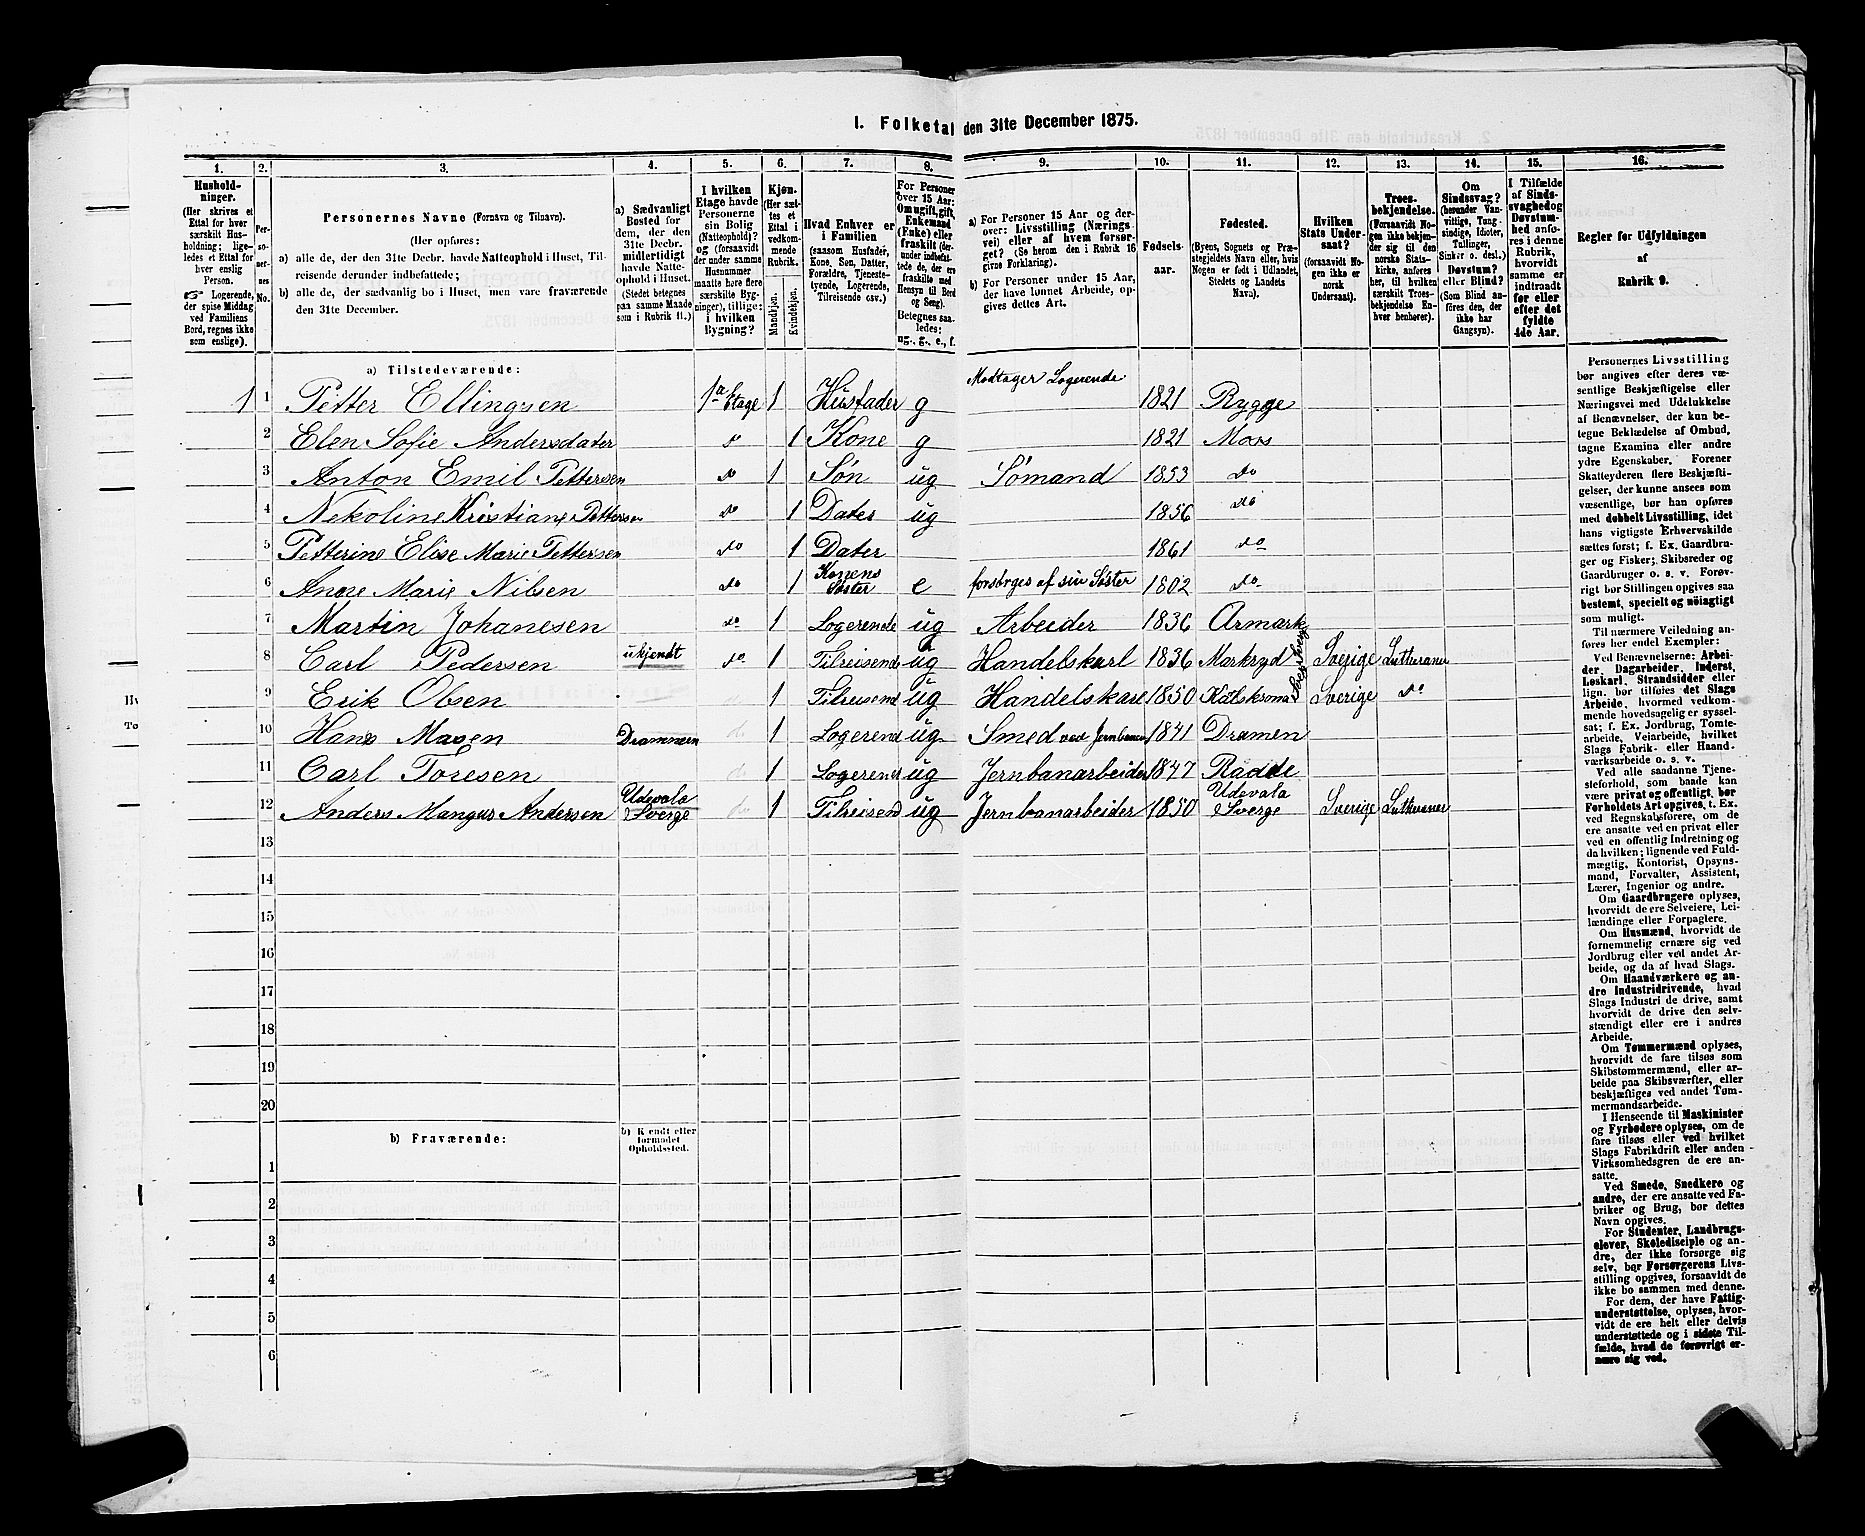 I. Folketal den 31te December 1875.
1. 2. 3. 4. 5. 6. 7. 8. 9. 10. 11. 12. 13. 14. 15. 16.
Hushold-
ninger.
(Her skrives et
Ettal for hver
særskilt Hus-
holdning; lige-
ledes et Ettal for
hver enslig
Person.
☞ Logerende,
der spise Middag
ved Familiens
Bord, regnes ikke
som enslige).
Per-
so-
ner-
nes
No.
Personernes Navne (Fornavn og Tilnavn).
(Her opføres:
a) alle de, der den 31te Decbr. havde Natteophold i Huset, Til-
reisende derunder indbefattede;
b) alle de, der sædvanlig bo i Huset, men vare fraværende
den 31te December.
a) Sædvanligt
Bosted for
dem, der den
31te Decbr.
midlertidigt
havde Natte-
ophold i Huset.
(Stedet betegnes
paa samme Maade
som i Rubrik 11.)
I hvilken
Etage havde
Personerne
sin Bolig
(Natteophold)?
og (forsaavidt
der under samme
Husnummer
maatte høre flere
særskilte Byg-
ninger), tillige:
i hvilken
Bygning?
Kjøn.
(Her sæt-
tes et
Ettal i
vedkom-
mende
Rubrik.
Mandkjøn.
Kvindekjøn.
Hvad Enhver er
i Familien
(saasom Husfader,
Kone, Søn, Datter,
Forældre, Tjeneste-
tyende, Logerende,
Tilreisende osv.)
For Personer
over 15 Aar:
Om ugift, gift,
Enkemand
(Enke) eller
fraskilt (der-
under indbefat-
tede de, der ere
fraskilte med
Hensyn til Bord
og Seng).
Betegnes saa-
ledes:
ug., g., e., f.
a) For Personer 15 Aar og der-
over: Livsstilling (Nærings-
vei) eller af hvem forsør-
get? (Se herom den i Rubrik 16
givne Forklaring).
b) For Personer under 15 Aar,
der have lønnet Arbeide, op-
gives dettes Art.
Fødsels-
aar.
Fødested.
(Byens, Sognets og Præ-
stegjeldets Navn eller, hvis
Nogen er født i Udlandet,
Stedets og Landets
Navn).
Hvilken
Stats Under-
saat?
(forsaavidt No-
gen ikke er
norsk
Undersaat).
Troes-
bekjendelse.
(Forsaavidt No-
gen ikke bekjen-
der sig til den
norske Stats-
kirke, anføres
her, til hvilken
særskilt Troes-
bekjendelse En-
hver henhører).
Om
Sindssvag?
(herunder Van-
vittige, Tung-
sindige, Idioter,
Tullinger,
Sinker o. desl.)
Døvstum?
eller Blind?
(Som Blind an-
føres den, der
ikke har
Gangsyn).
I Tilfælde
af Sinds-
svaghed og
Døvstum-
hed anfø-
res i denne
Rubrik,
hvorvidt
samme er
indtraadt
før eller
efter det
fyldte
4de Aar.
Regler for Udfyldningen
af
Rubrik 9.
a) Tilstedeværende:
1 1 Petter Ellingsen 1ª Etage 1 Husfader g Modtager Logerende 1821 Rygge
2 Elen Sofie Andersdater 1 Kone g 1821 Mors
3 Anton Emil Pettersen do 1 Søn ug Sømand 1853 do
4 Nekoline Kristiane Pettersen do 1 Dater ug 1856 do
5 Petterine Elise Marie Pettersen do 1 Dater 1861 do
6 Anne Marie Nilsen do 1 Konens Søster e forsørges af sin Søster 1802 do
7 Martin Johanesen do 1 Logerende ug Arbeider 1836 Armark
8 Carl Pedersen ukjendt do 1 Tilreisende ug Handelskarl 1836 Markryd Sverige Lutheraner
9 Erik Olsen 1 Tilreisend ug Handelskarl 1850 Sverige do
10 Hans Drammen do 1 Logerend ug Smed ved Jernbanen 1841 Dramen
11 Carl Toresen do 1 Logerend ug Jernbanarbeider 1847 Rådde
12 Anders Mangus Andersen Udevala Sverge do 1 Tilreisend ug Jernbanarbeider 1850 Udevala Sverge Sverige Lutheraner
13
14
15
16
17
18
19
20
b) Fraværende:
b) Kjendt eller
formodet
Opholdssted.
1
2
3
4
5
6
Personernes Livsstilling
bør angives efter deres væ-
sentlige Beskjæftigelse eller
Næringsvei med Udelukkelse
af Benævnelser, der kun be-
tegne Beklædelse af Ombud,
tagne Examina eller andre
ydre Egenskaber. Forener
Skatteyderen flere Beskjæfti-
gelser, der kunne ansees som
væsentlige, bør han opføres
med dobbelt Livsstilling, idet
hans vigtigste Erhvervskilde
sættes først; f. Ex. Gaardbru-
ger og Fisker; Skibsreder og
Gaardbruger o. s. v. Forøv-
rigt bør Stillingen opgives saa
bestemt, specielt og nøiagtigt
som muligt.
Til nærmere Veiledning an-
føres her endel Exempler:
Ved Benævnelserne: Arbei-
der, Dagarbeider, Inderst,
Løskarl, Strandsidder eller
lign. bør tilføies det Slags
Arbeide, hvormed vedkom-
mende hovedsagelig er syssel-
sat; f. Ex. Jordbrug, Tomte-
arbeide, Veiarbeide, hvilket
Slags Fabrik- eller Haand-
værksarbeide o. s. v.
Ved alle saadanne Tjene-
steforhold, som baade kan
være privat og offentligt, bør
Forholdets Art opgives, t. Ex.
ved Regnskabsførere, om de
ere ansatte ved en privat eller
ved en offentlig Indretning og
da hvilken; lignende ved Fuld-
mægtig, Kontorist, Opsyns-
mand, Forvalter, Assistent,
Lærer, Ingeniør og andre.
Om Gaardbrugere oplyses,
hvorvidt de ere Selveiere, Lei-
lændinge eller Forpagtere.
Om Husmænd, hvorvidt de
fornemmelig ernære sig ved
Jordbrug eller ved andet Ar-
beide, og da af hvad Slags.
Om Haandværkere og an-
dre Industridrivende, hvad
Slags Industri de drive, samt
hvorvidt de drive den selv-
stændigt eller ere i andres
Arbeide.
Om Tømmermænd oplyses,
hvorvidt de fare tilsøs som
Skibstømmermænd, eller ar-
beide paa Skibsværfter, eller
beskjæftiges ved andet Tøm-
mermandsarbeide.
I Henseende til Maskinister
og Fyrbødere oplyses, om de
fare tilsøs eller ved hvilket
Slags Fabrikdrift eller anden
Virksomhedsgren de ere an-
satte.
Ved Smede, Snedkere og
andre, der ere ansatte ved Fa-
briker og Brug, bør dettes
Navn opgives.
For Studenter, Landbrugs-
elever, Skoledisciple og an-
dre, der ikke forsørge sig
selv, bør Forsørgerens Livs-
stilling opgives, forsaavidt de
ikke bo sammen med denne.
For dem, der have Fattig-
understøttelse, oplyses, hvor-
vidt de ere helt eller delvis
understøttede og i sidste Til-
fælde, hvad de forøvrigt er-
nære sig ved.